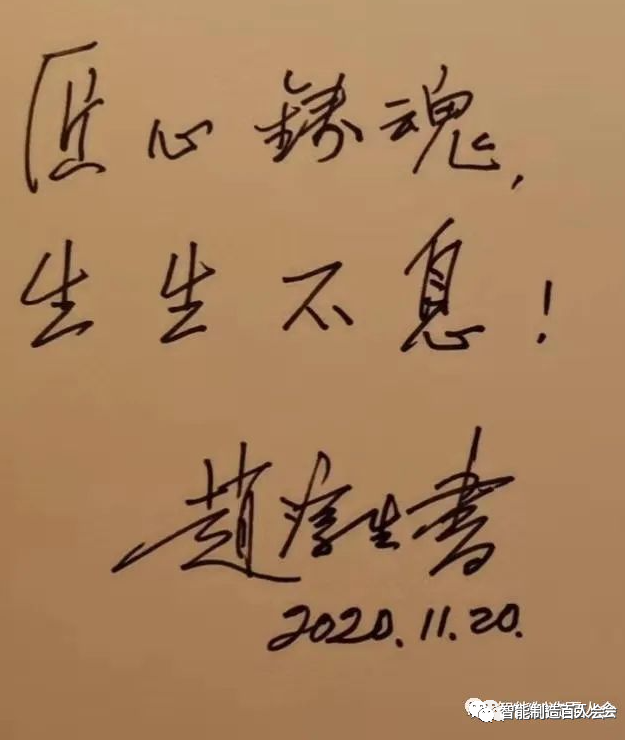 匠心鋳魂,
生生不息!
趙 生書
2020.11.20.
智能制造百人会